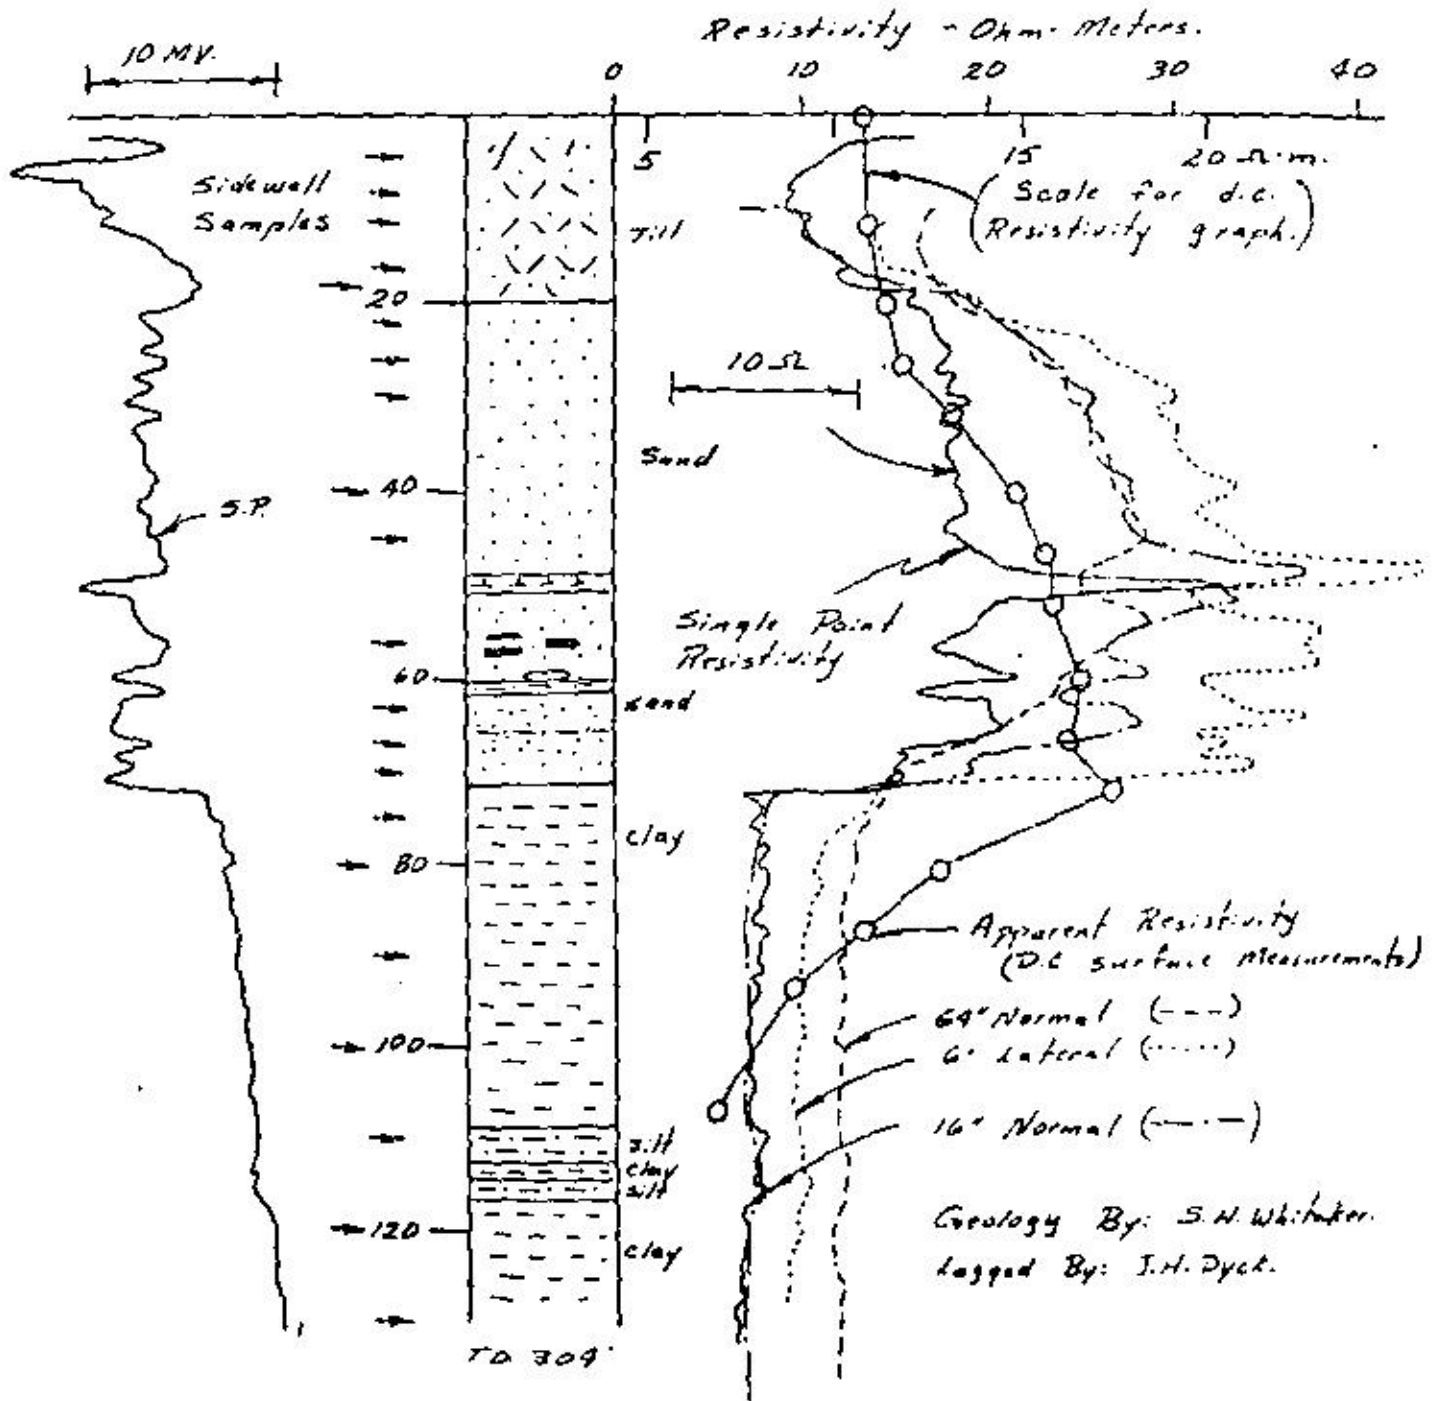 Resistivity - Ohm-Meters.
10 MV.
0 10 20 30 40
5 15 20 Ω-m.
Sidewall
Samples
(Scale for d.c.
Resistivity graph.)
Till
20
10 Ω
Sand
40
S.P.
Single Point
Resistivity
60
Sand
Clay
80
Apparent Resistivity
(D.C surface Measurements)
64" Normal (---)
100
6' Lateral (.....)
16" Normal (—·—)
Silt
Clay
Silt
120
Clay
Geology By: S.H. Whitaker.
Logged By: J.H. Dyck.
T.D. 304'